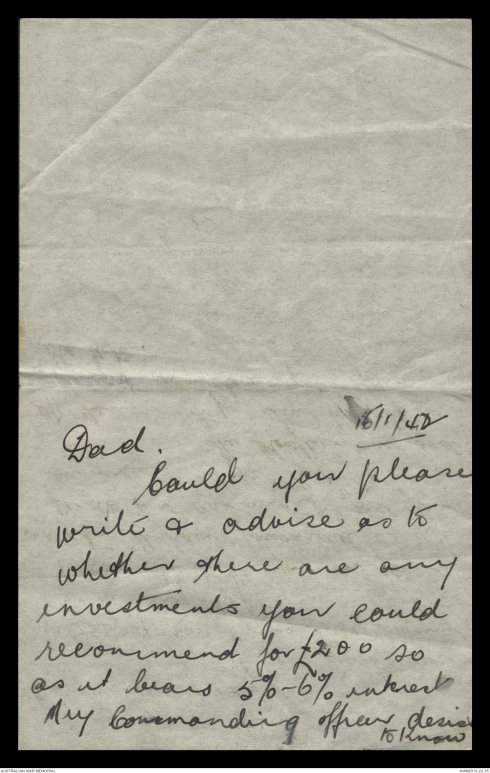 16/1/42
Dad.
Could you please
write & advise as to
whether there are any
investments you could
recommend for £200 so
as it bears 5%-6% interest
My Commanding officer
to know
AUSTRALIAN WAR MEMORIAL